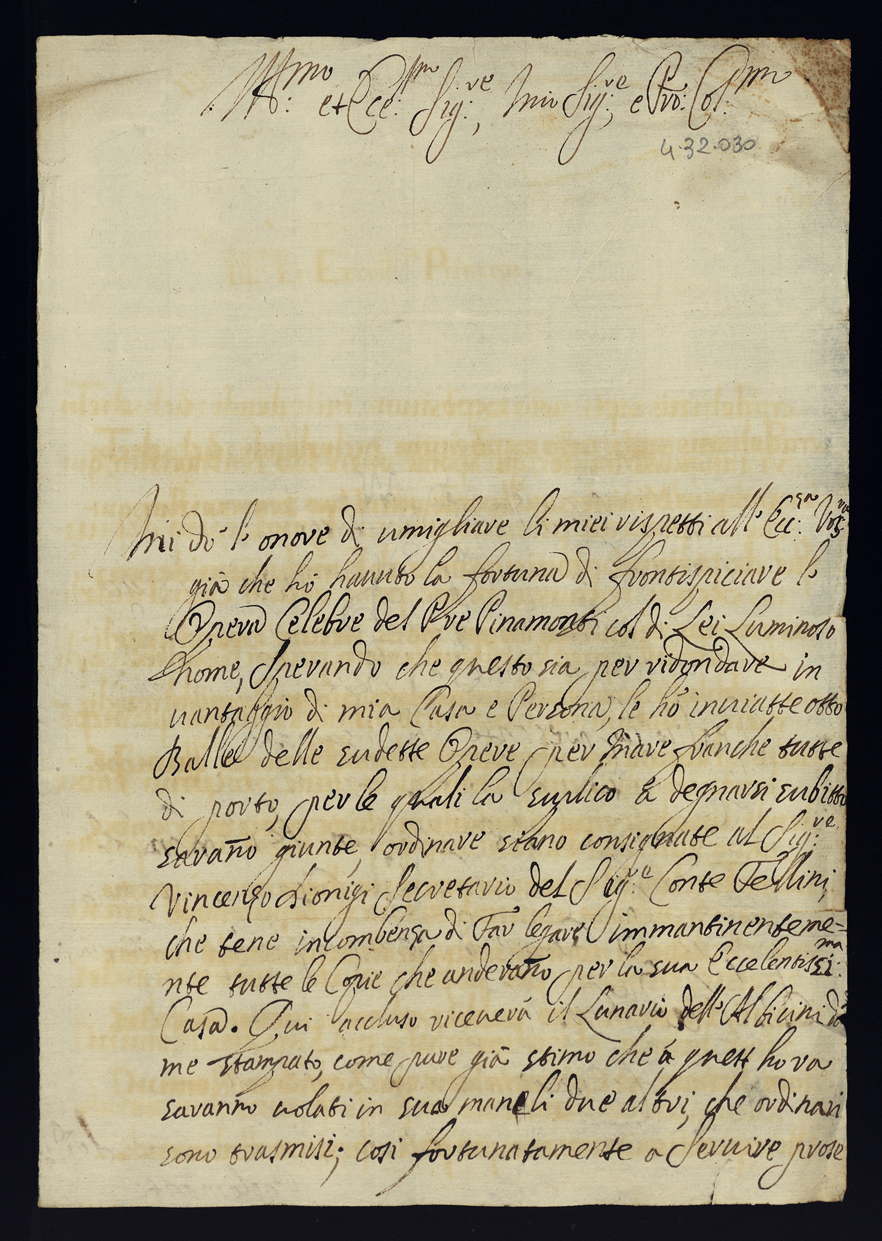 Ill:mo et Ecce:mo Sig:re, Mio Sig:re, e Pro: Col:mo
4.32.030
Mi dò l'onore di umigliare li miei rispetti all'Ecc:za Vos:ra
già che hò hauuto la fortuna di frontispiciare l'
Opera Celebre del Pre Pinamonti col di Lei Luminoso
Nome, Sperando che questo sia per ridondare in
uantaggio di mia Casa e Persona, le hò inuiatte otto
Balle delle sudette Opere per mare franche tutte
di porto, per le quali la suplico à degnarsi subitto
sarano giunte, ordinare siano consignate al Sig:re
Vincenzo Dionigi Secretario del Sig:re Conte Fellini,
che tene incombenza di Far legare immantinenteme=
nte tutte le Copie che anderano per la sua Eccelentissi:ma
Casa. Qui accluso riceuerà il Lunario dell'Albicini da
me stampato, come pure già stimo che à quest hora
saranno uolati in sua mano li due altri, che ordinari
sono trasmisi; così fortunatamente a Seruire prose